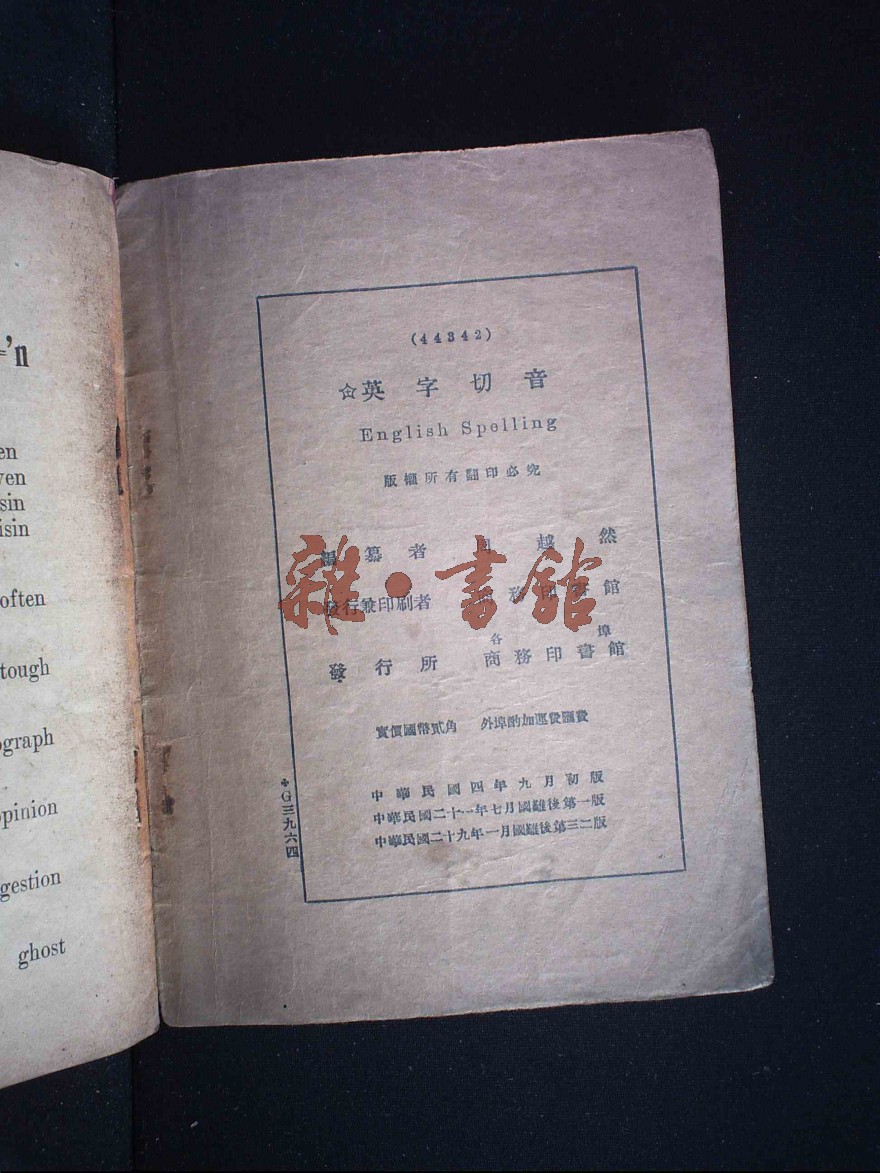 'n
en
ven
sin
isin
often
tough
ograph
opinion
gestion
ghost
(44342)
英字切音
English Spelling
版權所有翻印必究
編纂者 周越然
發行兼印刷者 商務印書館
各埠
發行所 商務印書館
實價國幣貳角 外埠酌加運費匯費
中華民國四年九月初版
中華民國二十一年七月國難後第一版
中華民國二十九年一月國難後第三二版
G三九六四
雜·書館